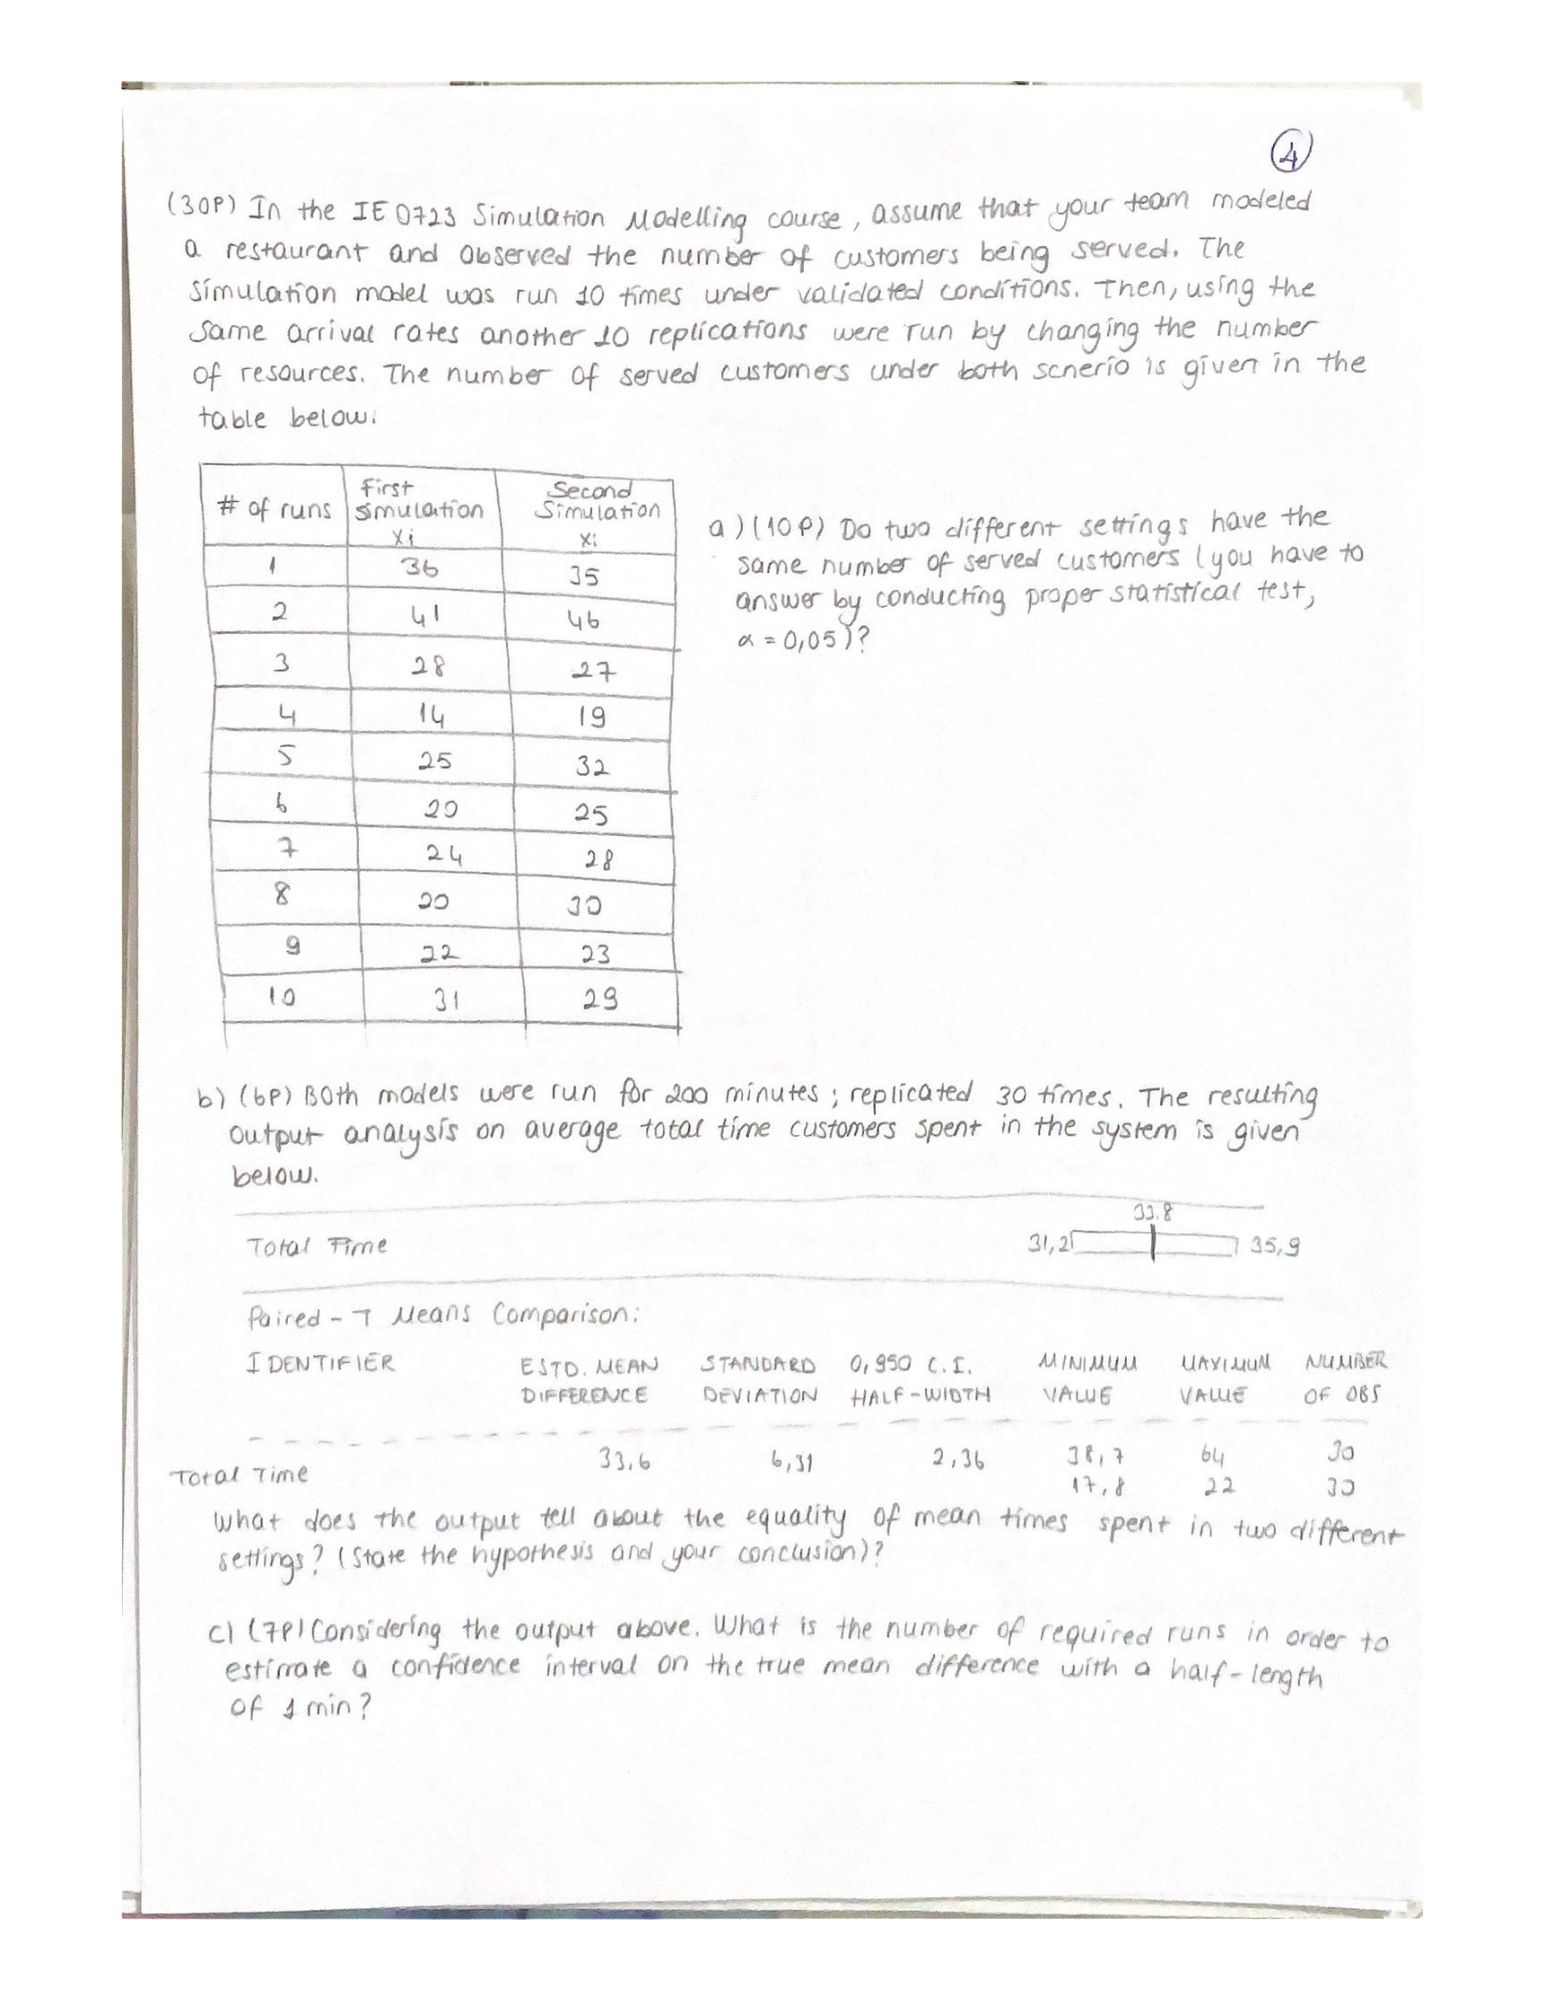 4
(30P) In the IE 0723 Simulation Modelling course, assume that your team modeled
a restaurant and observed the number of customers being served. The
simulation model was run 10 times under validated conditions. Then, using the
same arrival rates another 10 replications were run by changing the number
of resources. The number of served customers under both scnerio is given in the
table below.
# of runs First simulation xi Second Simulation xi
1 36 35
2 41 46
3 28 27
4 14 19
5 25 32
6 20 25
7 24 28
8 20 30
9 22 23
10 31 29
a) (10P) Do two different settings have the
same number of served customers (you have to
answer by conducting proper statistical test,
α = 0,05)?
b) (6P) Both models were run for 200 minutes; replicated 30 times. The resulting
output analysis on average total time customers spent in the system is given
below.
33.8
Total Time 31,2 35,9
Paired - T Means Comparison:
IDENTIFIER ESTD. MEAN STANDARD 0,950 C.I. MINIMUM MAXIMUM NUMBER
DIFFERENCE DEVIATION HALF-WIDTH VALUE VALUE OF OBS
Total Time 33,6 6,31 2,36 38,7 64 30
17,8 22 30
What does the output tell about the equality of mean times spent in two different
settings? (State the hypothesis and your conclusion)?
c) (7P) Considering the output above. What is the number of required runs in order to
estimate a confidence interval on the true mean difference with a half-length
of 1 min?